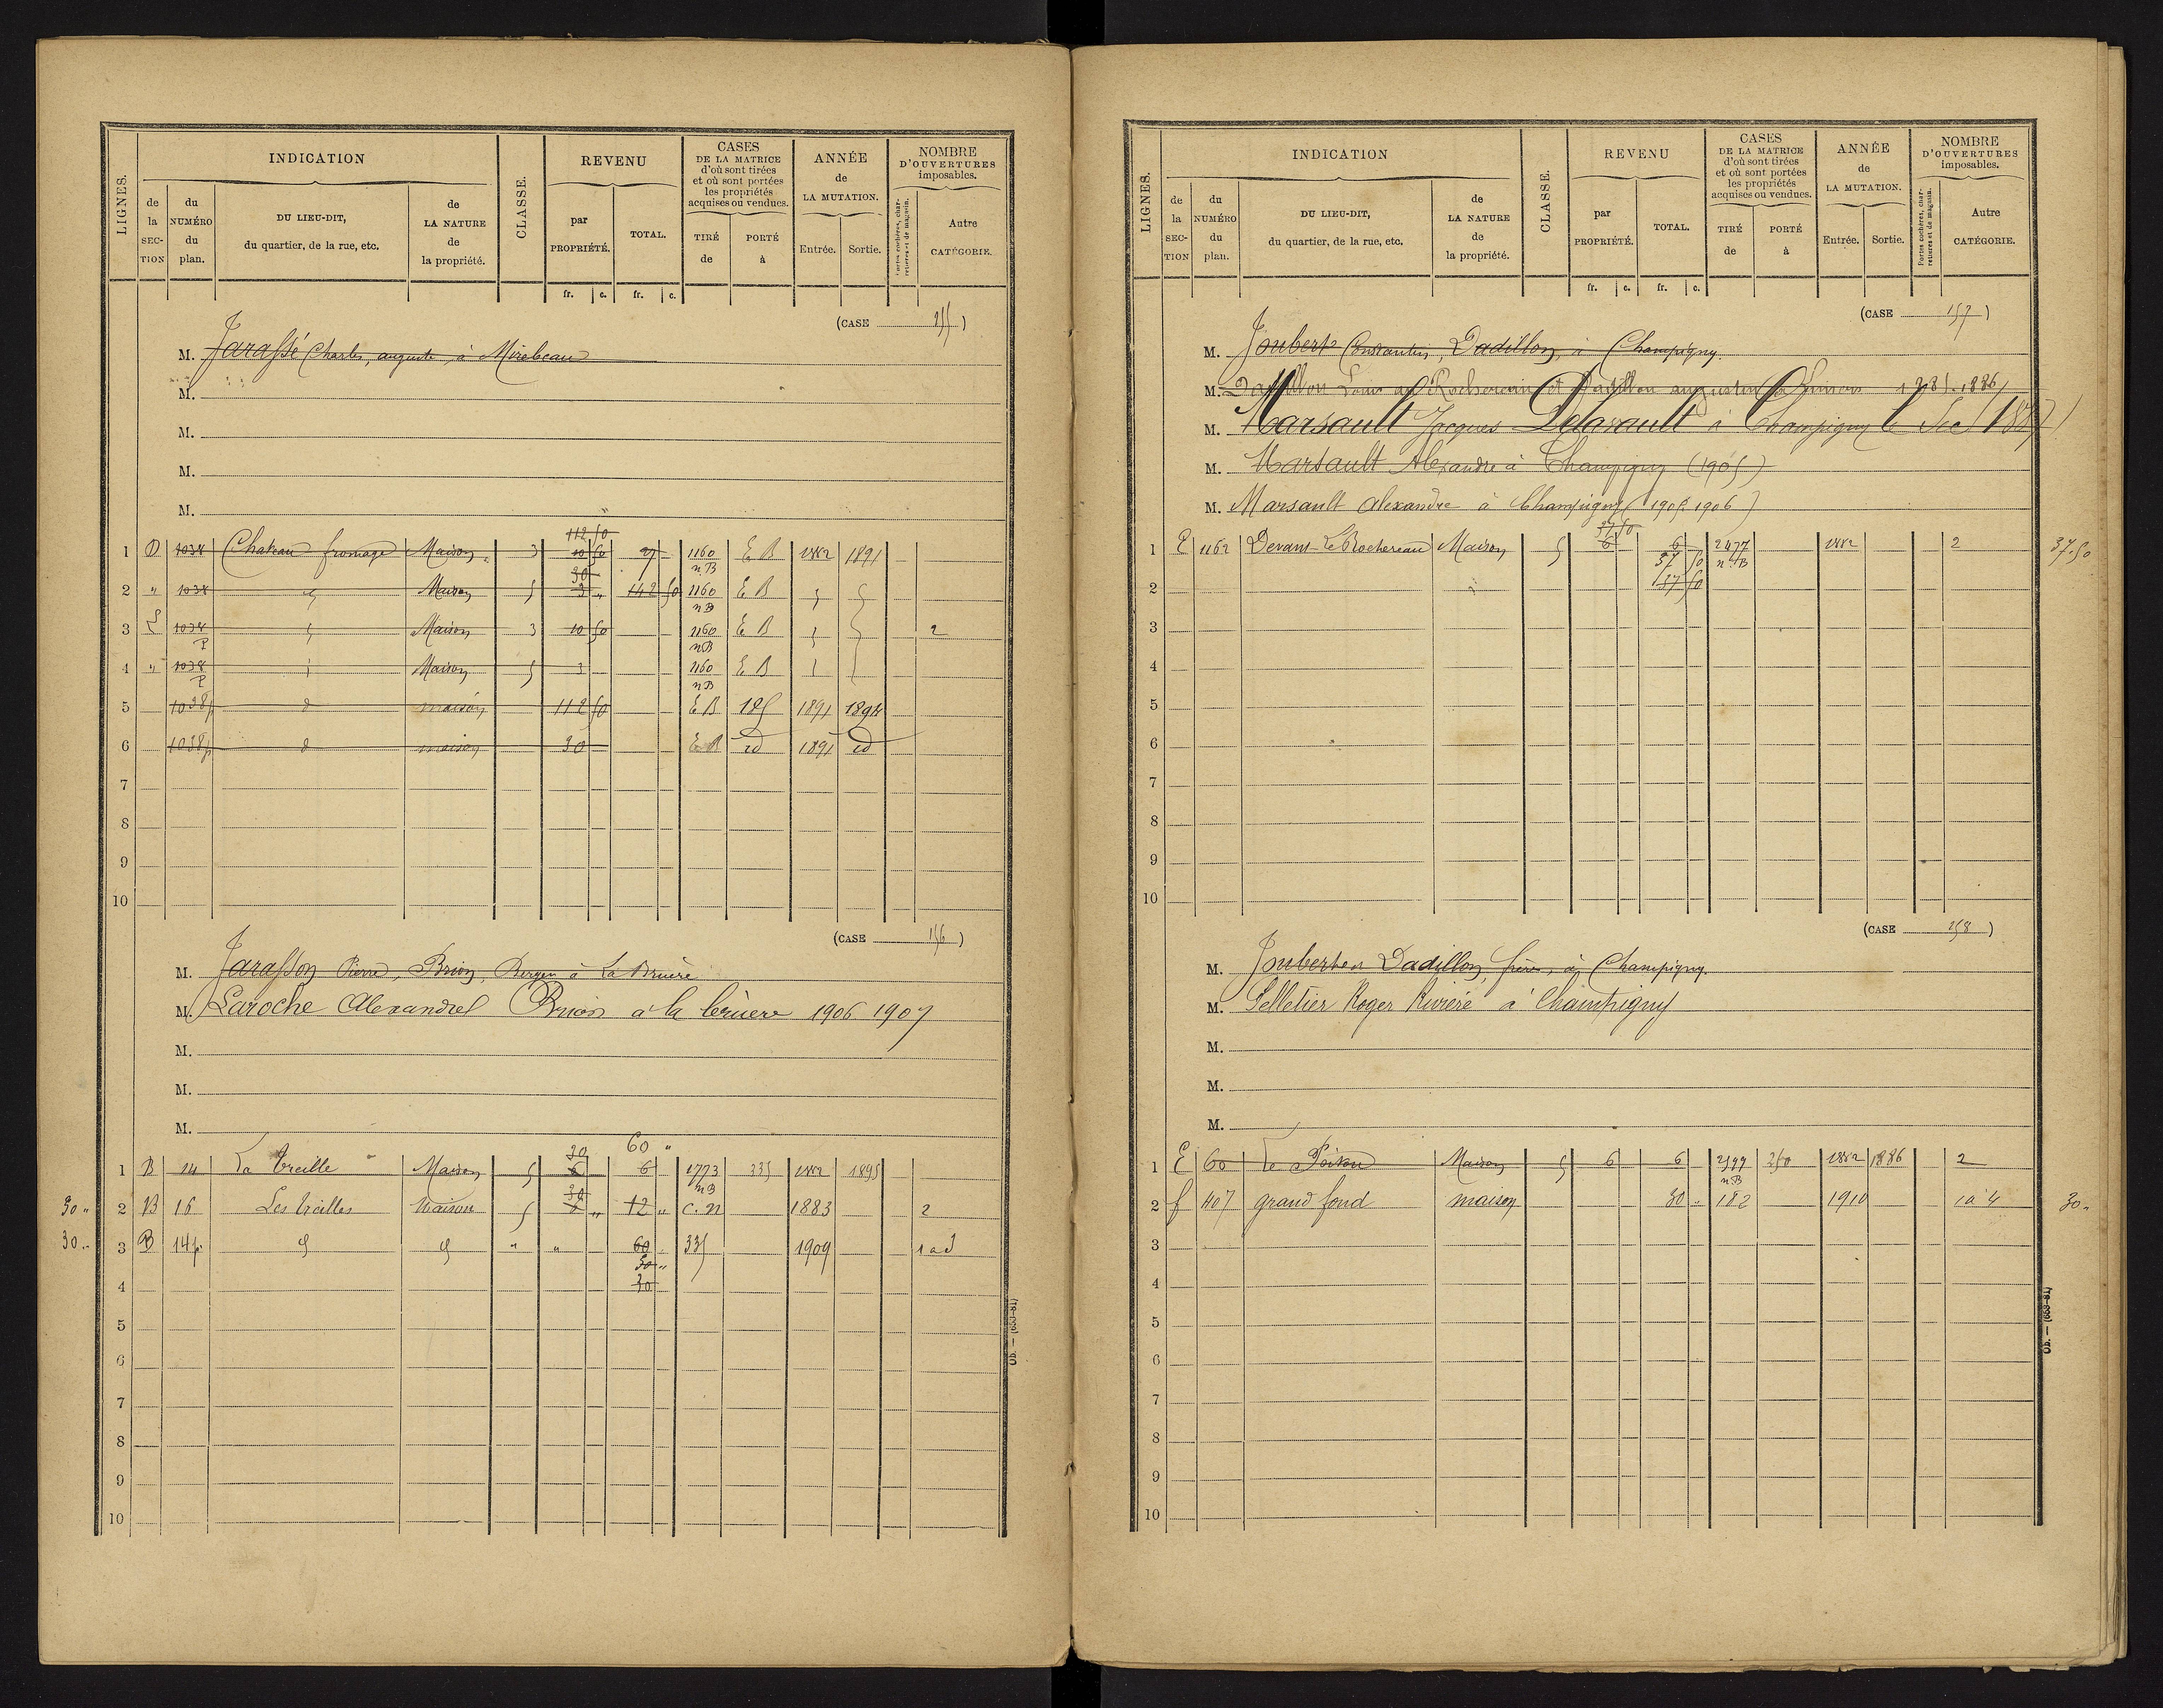 LIGNES.
INDICATION
de la SECTION
du NUMÉRO du plan.
DU LIEU-DIT, du quartier, de la rue, etc.
de LA NATURE de la propriété.
CLASSE.
REVENU
par PROPRIÉTÉ.
TOTAL.
fr. c. fr. c.
CASES DE LA MATRICE d'où sont tirées et où sont portées les propriétés acquises ou vendues.
TIRÉ de
PORTÉ à
ANNÉE de LA MUTATION.
Entrée. Sortie.
NOMBRE D'OUVERTURES imposables.
Portes cochères, charretières et de magasin.
Autre CATÉGORIE.
(CASE 155)
M. Jarassé Charles, auguste, à Mirebeau
M.
M.
M.
M.
112 50
1 D 1038 Chateau fromage Maison 3 10 50 27 1160 EB 1882 1891
nB
30
2 " 1038 Maison 5 3 " 142 50 1160 EB
nB
3 1038 Maison 3 10 50 1160 EB 2
P nB
4 " 1038 Maison 5 3 1160 EB
P nB
5 1038p d maison 112 50 EB 185 1891 1894
6 1038p d maison 30 EB id 1891 id
7
8
9
10
(CASE 156)
M. Jarasson Pierre, Brion, Berger à La Bruère
M. Laroche Alexandre Brion à la bruère 1906 1907
M.
M.
M.
30 60 "
1 B 14 La Treille Maison 5 6 6 1773 335 1882 1895
nB
30
30 " 2 B 16 Les treilles Maison 5 6 " 12 " c.n 1883 2
30 " 3 B 14p. " " 60 335 1909 1 a 3
30 "
4 30
5
6
7
8
9
10
Ob. — (653-81)
LIGNES.
INDICATION
de la SECTION
du NUMÉRO du plan.
DU LIEU-DIT, du quartier, de la rue, etc.
de LA NATURE de la propriété.
CLASSE.
REVENU
par PROPRIÉTÉ.
TOTAL.
fr. c. fr. c.
CASES DE LA MATRICE d'où sont tirées et où sont portées les propriétés acquises ou vendues.
TIRÉ de
PORTÉ à
ANNÉE de LA MUTATION.
Entrée. Sortie.
NOMBRE D'OUVERTURES imposables.
Portes cochères, charretières et de magasin.
Autre CATÉGORIE.
(CASE 157)
M. Joubert Constantin, Dadillon, à Champigny.
M. Dadillon Louis au Rochereau et Dadillon augustin 1885-1886
M. Marsault Jacques Delavault à Champigny le Sec (1887)
M. Marsault Alexandre à Champigny (1905)
M. Marsault Alexandre à Champigny (1905 1906)
37 50
1 E 1162 Devant Le Rochereau Maison 5 6 6 2477 1882 2 37.50
37 50 nB
2 37 50
3
4
5
6
7
8
9
10
(CASE 158)
M. Joubert et Dadillon, frères, à Champigny.
M. Pelletier Roger Rivière à Champigny
M.
M.
M.
1 E 60 Le Poitou Maison 5 6 6 2599 250 1882 1886 2
nB
2 f 407 grand fond maison 30 " 182 1910 1 à 4 30 "
3
4
5
6
7
8
9
10
Ob. — (653-81)